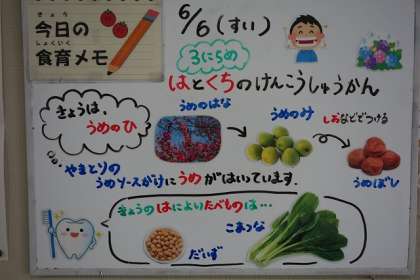 きょう
今日の
しょくいく
食育メモ
6/6(すい)
3にちめ
はとくちのけんこうしゅうかん
きょうは、
うめのひ
うめのはな
うめのみ
しおなどでつける
うめぼし
やきとりの
うめソースがけにうめがはいっています.
きょうのはによいたべものは…
だいず
こまつな